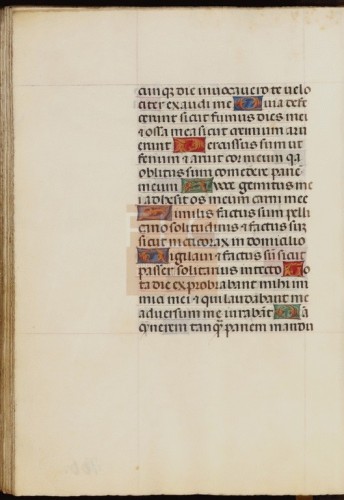 cunq die invocavero te velo
citer exaudi me Quia defe
cerunt sicut fumus dies mei
et ossa mea sicut cremium aru
erunt Percussus sum ut
fenum et aruit cor meum qa
oblitus sum comedere pane
meum A voce gemitus me
i adhesit os meum carni mee
Similis factus sum pelli
cano solitudinis et factus su
sicut nicticorax in domicilio
Vigilavi et factus su sicut
passer solitarius in tecto To
ta die exprobrabant mihi ini
mici mei et qui laudabant me
adversum me iurabat Quia
cinerem tanq panem mandu